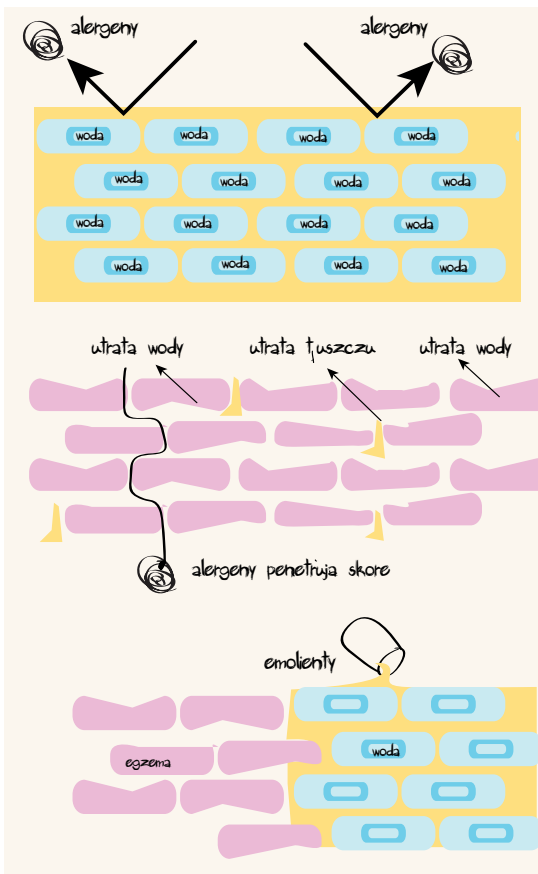 alergeny
alergeny
woda woda woda woda
woda woda woda woda
woda woda woda woda
woda woda woda woda
utrata wody
utrata tłuszczu
utrata wody
alergeny penetrują skore
emolienty
egzema
woda